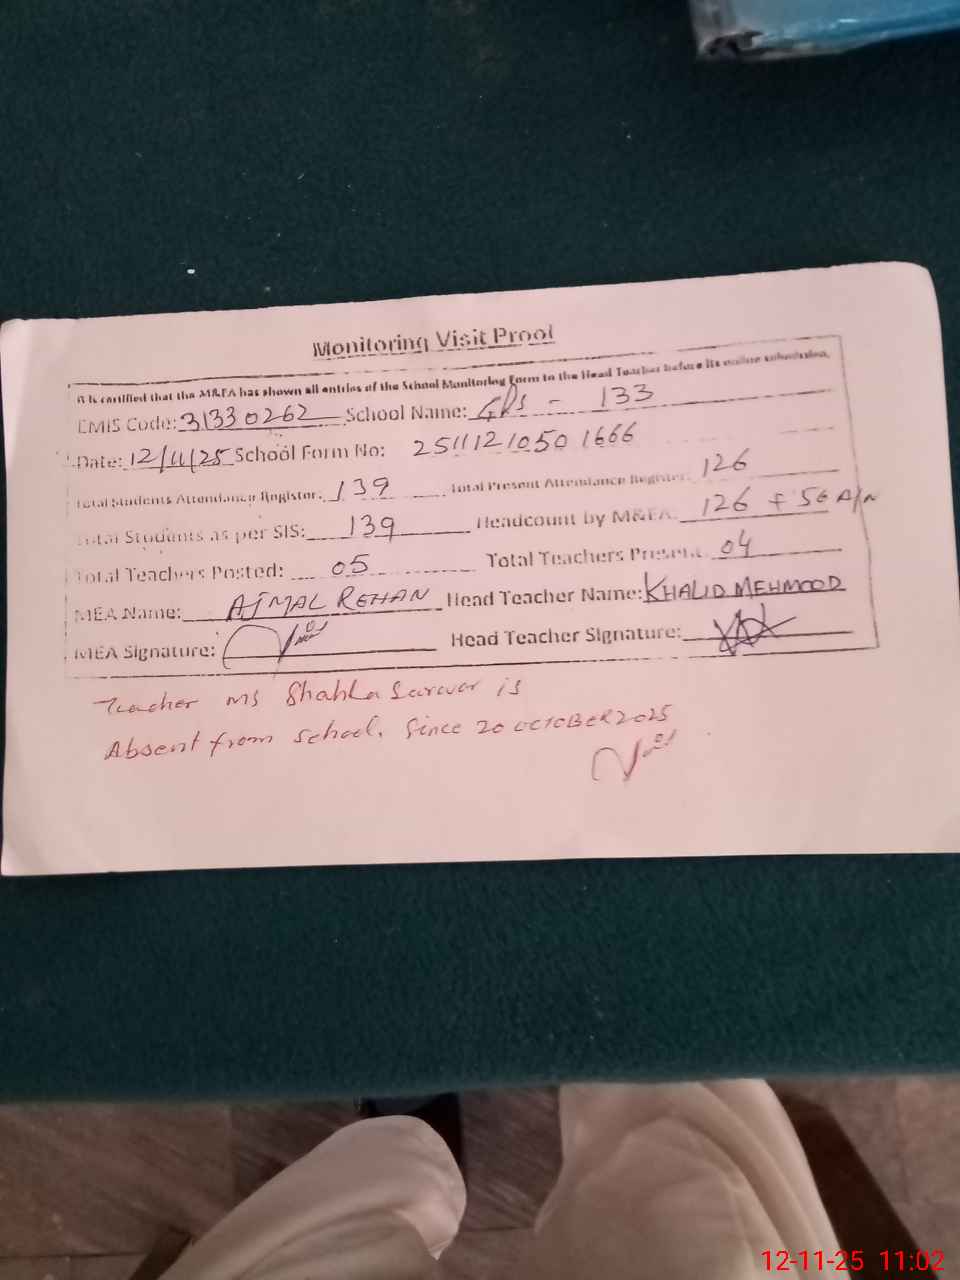 Monitoring Visit Proof
It is certified that the M&EA has shown all entries of the School Monitoring Form to the Head Teacher before its online submission.
EMIS Code: 31330262 School Name: GPS - 133
Date: 12/11/25 School Form No: 2511121050 1666
Total Students Attendance Register: 139 Total Present Attendance Register: 126
Total Students as per SIS: 139 Headcount by M&EA: 126 +
Total Teachers Posted: 05 Total Teachers Present: 04
MEA Name: AJMAL REHAN Head Teacher Name: KHALID MEHMOOD
MEA Signature: Head Teacher Signature:
Teacher MS Shahla Sarwar is
Absent from school. Since 20 OCTOBER 2025
12-11-25 11:02